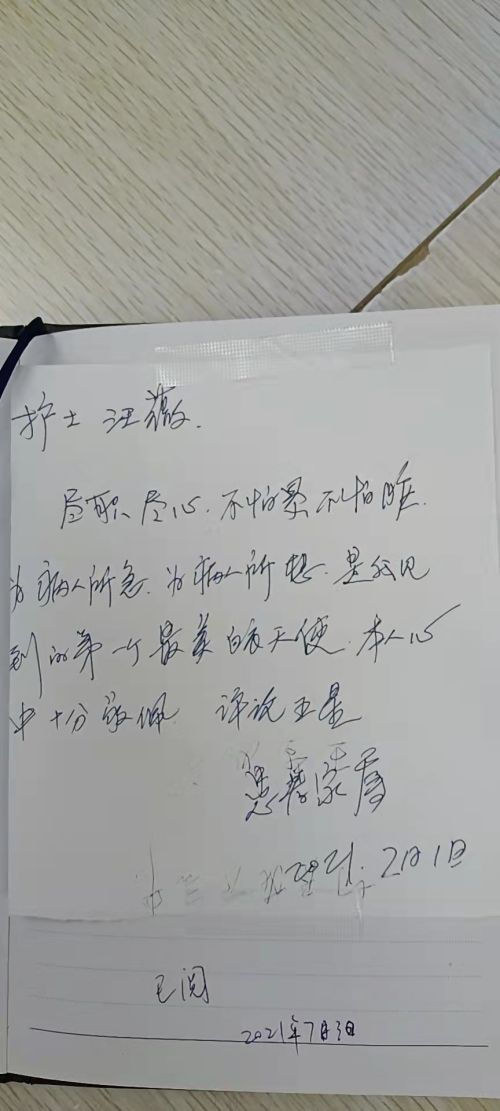 护士 汪薇.
尽职、尽心. 不怕累不怕脏.
为病人所急. 为病人所想. 是我见
到的第一个最美白衣天使. 本人心
中十分敬佩 评论五星
患者家属
2月1日
已阅
2021年7月3日